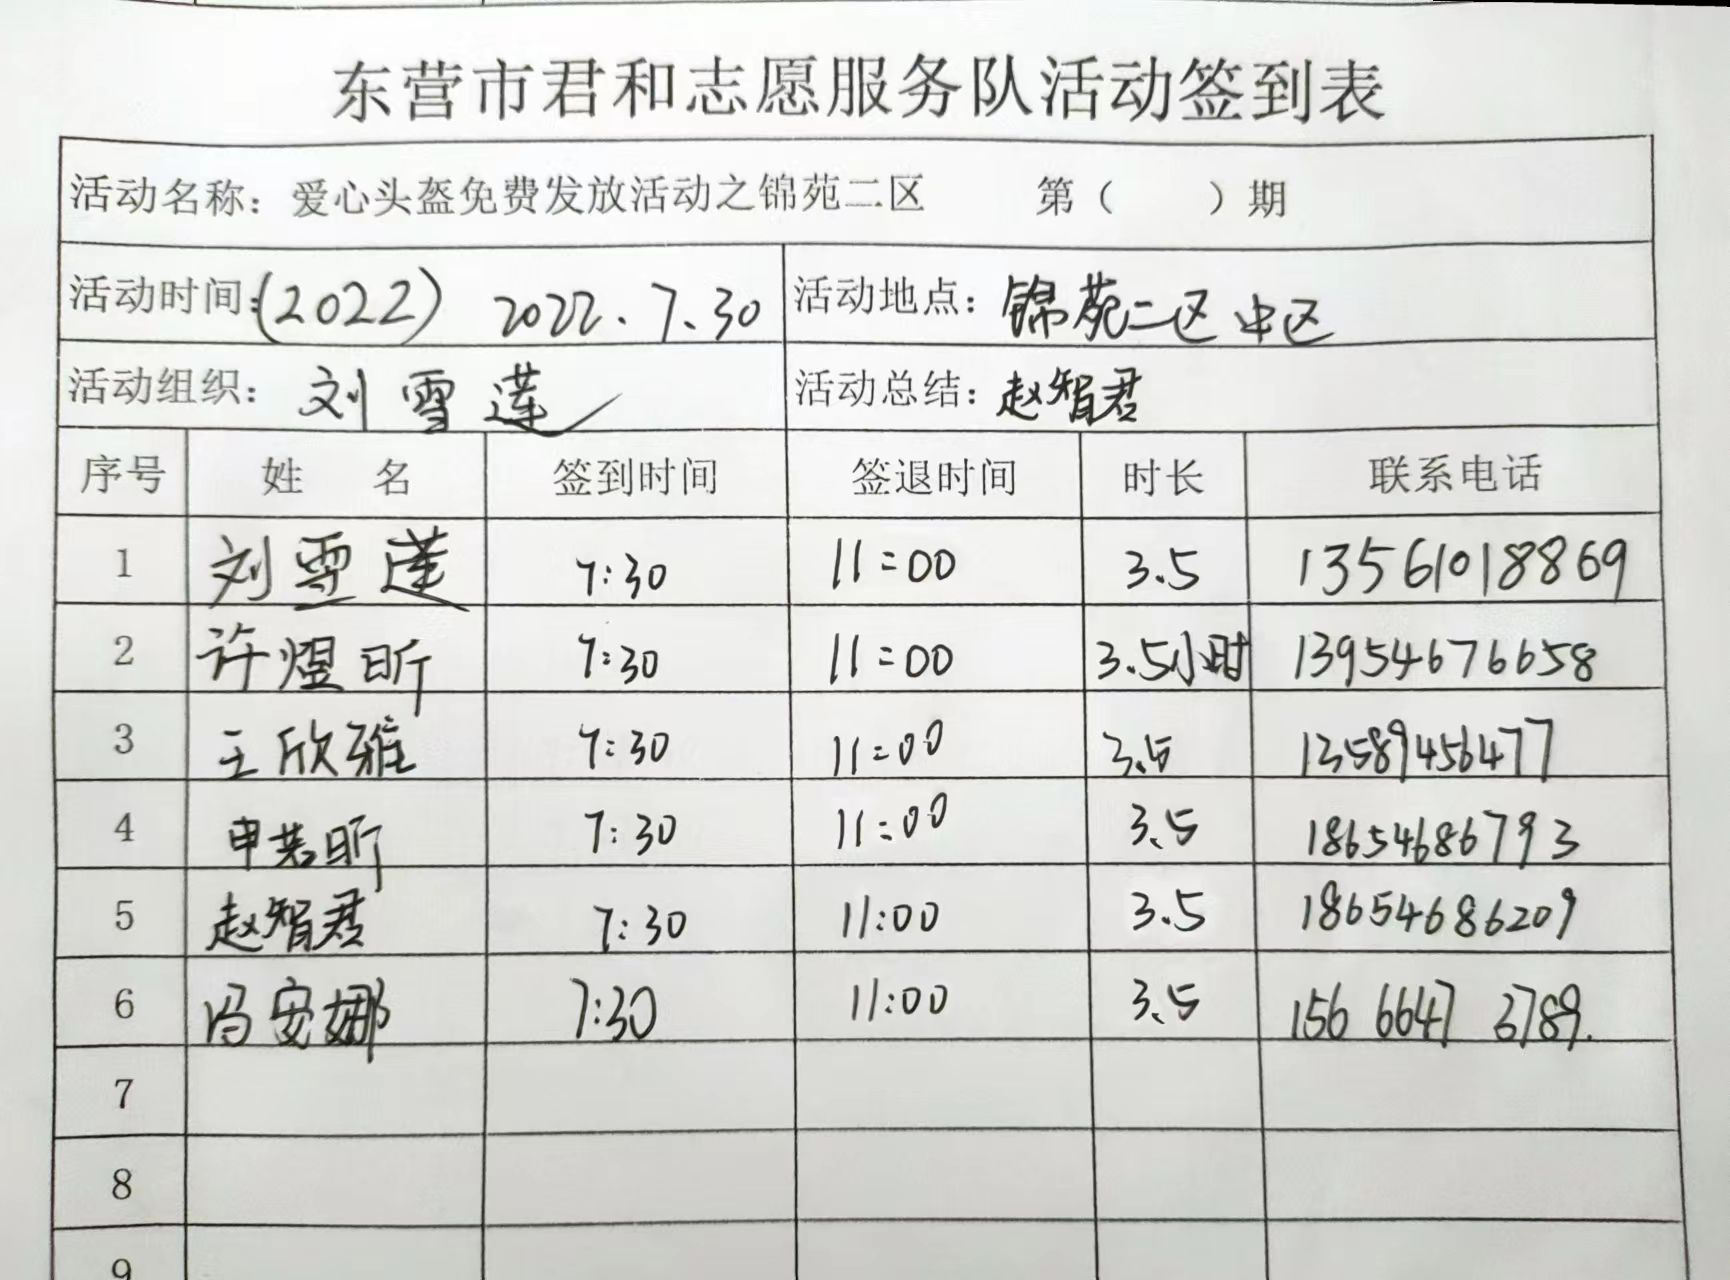 东营市君和志愿服务队活动签到表
活动名称：爱心头盔免费发放活动之锦苑二区 第（ ）期
活动时间：(2022) 2022.7.30 活动地点：锦苑二区中区
活动组织：刘雪莲 活动总结：赵智君
序号 姓 名 签到时间 签退时间 时长 联系电话
1 刘雪莲 7:30 11:00 3.5 13561018869
2 许煜昕 7:30 11:00 3.5小时 13954676658
3 王欣雅 7:30 11:00 3.5 13589456477
4 申若昕 7:30 11:00 3.5 18654686793
5 赵智君 7:30 11:00 3.5 18654686209
6 冯安娜 7:30 11:00 3.5 156 6647 3789.
7
8
9